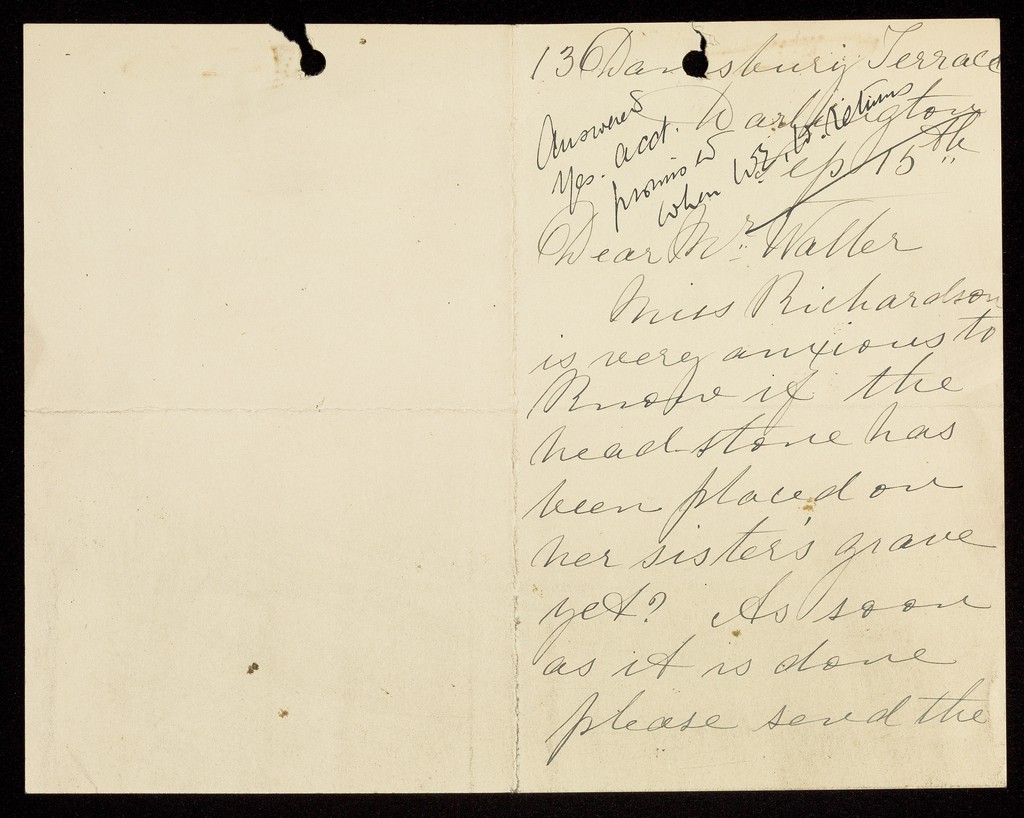 13 Danesbury Terrace
Darlington
Sep 15th
Answered
Yes. acct.
promised
when W. Returns
Dear Mr. Waller
Miss Richardson
is very anxious to
Know if the
head-stone has
been placed on
her sister's grave
yet? As soon
as it is done
please send the